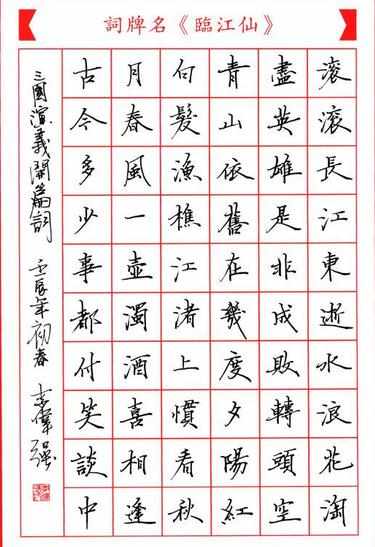 詞牌名《臨江仙》
滚滚長江東逝水浪花淘
盡英雄是非成敗轉頭空
青山依舊在幾度夕陽紅
白髮漁樵江渚上慣看秋
月春風一壺濁酒喜相逢
古今多少事都付笑談中
三國演義開篇詞 壬辰年初春 志偉强